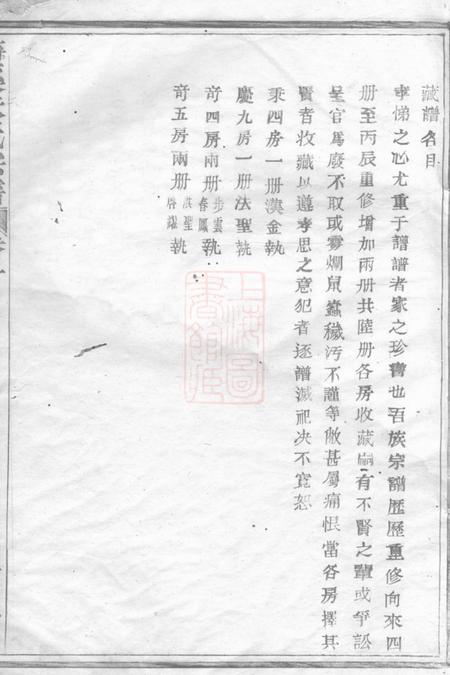 藏譜名目
孝悌之心尤重于譜譜者家之珍寶也吾族宗譜歷歷重修向來四
册至丙辰重修增加兩册共陸册各房收藏嗣有不賢之輩或爭訟
呈官爲廢不取或霉爛鼠蠹穢污不謹等敝甚屬痛恨當各房擇其
賢者收藏以遵孝思之意犯者逐譜滅祀决不寬恕
秉四房一册漢金執
慶九房一册法聖執
奇四房兩册步雲春鳳執
奇五房兩册洪聖啓執
上海圖書館藏